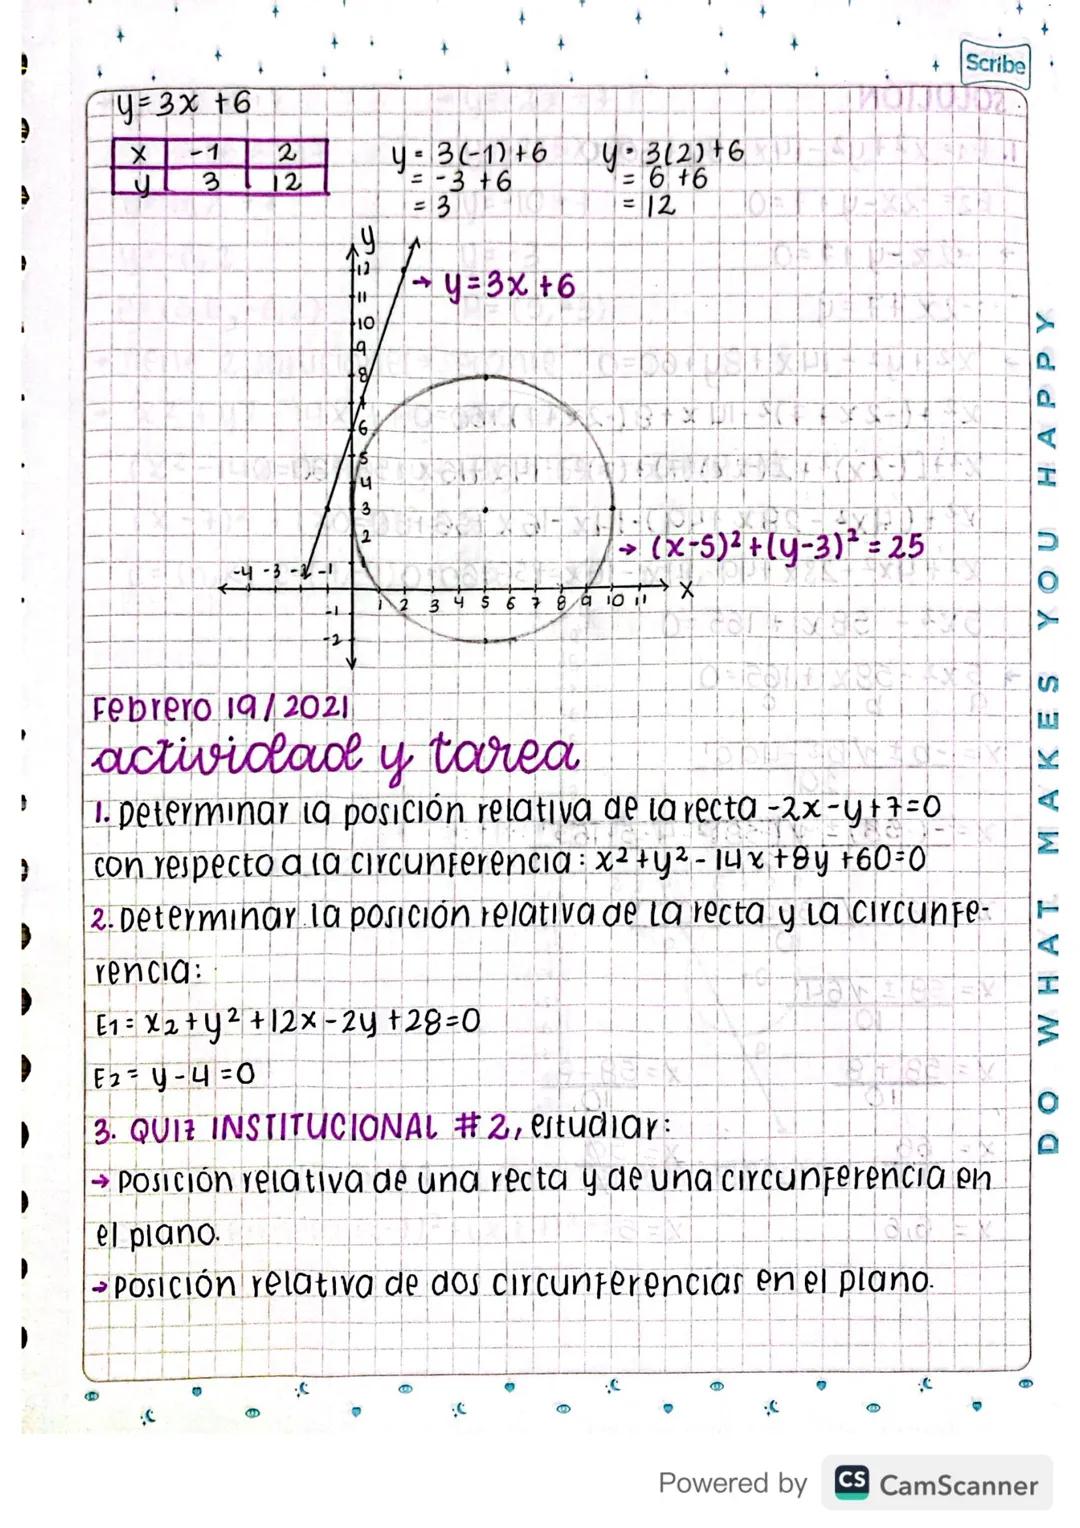 Scribe
y=3x+6
x -1 2
y 3 12
y=3(-1)+6
=-3+6
=3
y=3(2)+6
=6+6
=12
y
12
11
10
9
8
7
6
5
4
3
2
1
→ y=3x+6
→ (x-5)²+(y-3)²=25
-4 -3 -2 -1
1 2 3 4 5 6 7 8 9 10 11 x
-1
-2
Febrero 19/2021
actividad y tarea
1. Determinar la posición relativa de la recta -2x-y+7=0
con respecto a la circunferencia: x²+y²-14x+8y+60=0
2. Determinar la posición relativa de la recta y la circunfe-
rencia:
E1= x2+y²+12x-2y+28=0
E2= y-4=0
3. QUIZ INSTITUCIONAL #2, estudiar:
→ Posición relativa de una recta y de una circunferencia en
el plano.
→ Posición relativa de dos circunferencias en el plano.
DO WHAT MAKES YOU HAPPY
Powered by CS CamScanner